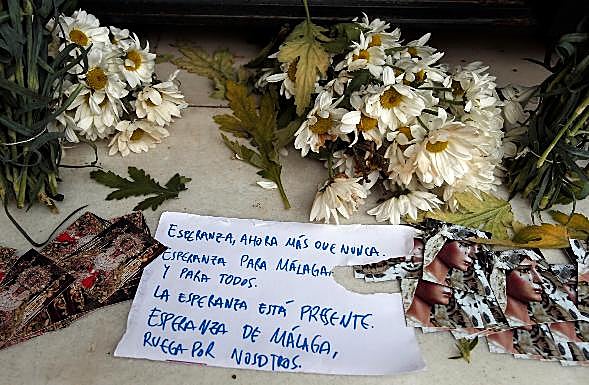 ESPERANZA, AHORA MÁS QUE NUNCA.
ESPERANZA PARA MÁLAGA
Y PARA TODOS.
LA ESPERANZA ESTÁ PRESENTE.
ESPERANZA DE MÁLAGA,
RUEGA POR NOSOTROS.